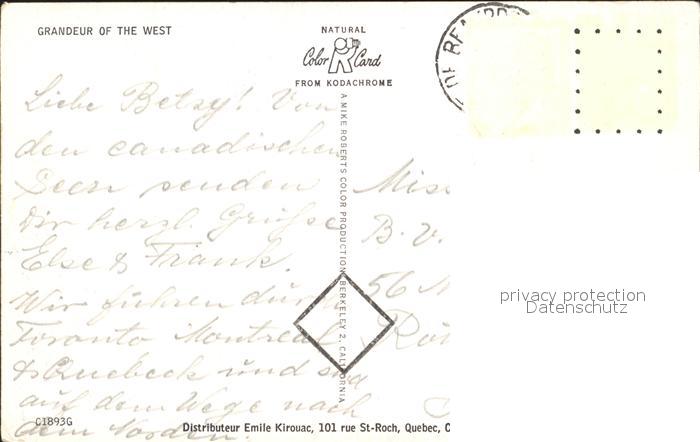 GRANDEUR OF THE WEST
NATURAL
Color Card
FROM KODACHROME
A MIKE ROBERTS COLOR PRODUCTION BERKELEY 2, CALIFORNIA
Liebe Betsy! Von
den canadischen
Seen senden
Dir herzl. Grüsse
Else & Frank.
Wir fuhren durch
Toranto Montreal
& Quebeck und sind
auf dem Wege nach
dem Norden.
Miss
B. V.
56
privacy protection
Datenschutz
C1893G
Distributeur Emile Kirouac, 101 rue St-Roch, Quebec, C